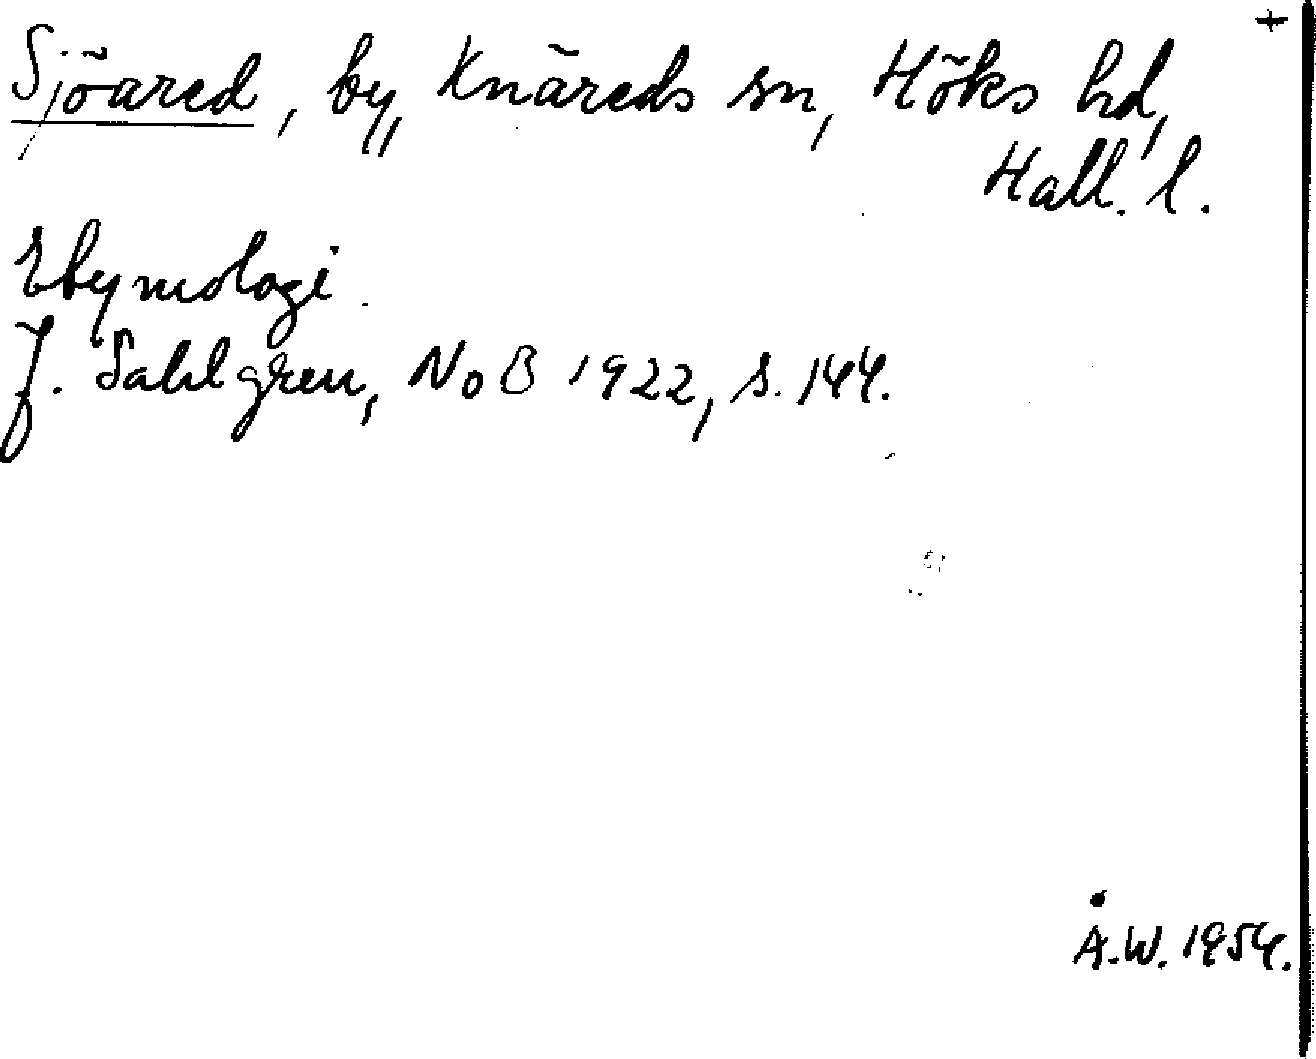 +
Sjöared, by, Knäreds sn, Höks hd,
Hall. l.
Etymologi.
J. Sahlgren, NoB 1922, s. 144.
Å.W. 1954.